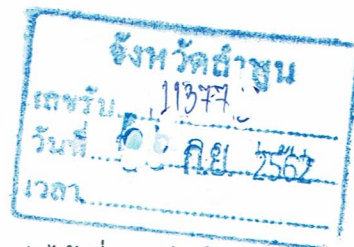 จังหวัดลำพูน
เลขรับ 11377
วันที่ ก.ย. 2562
เวลา